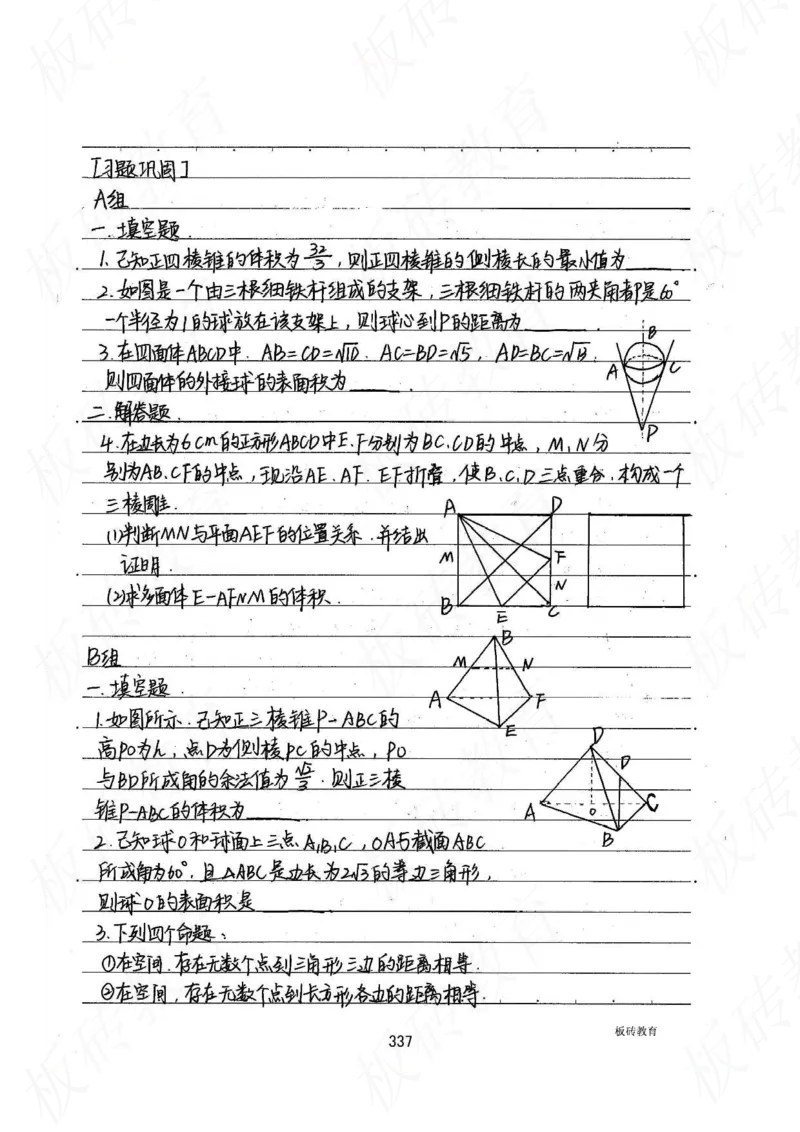 [习题巩固]
A组
一.填空题.
1.已知正四棱锥的体积为32/3,则正四棱锥的侧棱长的最小值为____
2.如图是一个由三根细铁杆组成的支架,三根细铁杆的两夹角都是60°
一个半径为1的球放在该支架上,则球心到P的距离为____.
3.在四面体ABCD中.AB=CD=√10.AC=BD=√5,AD=BC=√13.
则四面体的外接球的表面积为____.
B
A
C
P
二.解答题.
4.在边长为6cm的正方形ABCD中E.F分别为BC.CD的中点,M,N分
别为AB.CF的中点,现沿AE.AF.EF折叠,使B.C.D三点重合.构成一个
三棱锥.
(1)判断MN与平面AEF的位置关系.并给出
证明.
(2)求多面体E-AFNM的体积.
A
D
M
F
N
B
E
C
B
M
N
A
F
E
B组
一.填空题.
1.如图所示.已知正三棱锥P-ABC的
高PO为h,点D为侧棱PC的中点,PO
与BD所成角的余法值为√2/3.则正三棱
锥P-ABC的体积为____
D
D
A
O
C
B
2.已知球O和球面上三点A,B,C,OA与截面ABC
所成角为60°,且△ABC是边长为2√3的等边三角形,
则球O的表面积是____
3.下列四个命题:
①在空间.存在无数个点到三角形三边的距离相等.
②在空间,存在无数个点到长方形各边的距离相等.
337
板砖教育